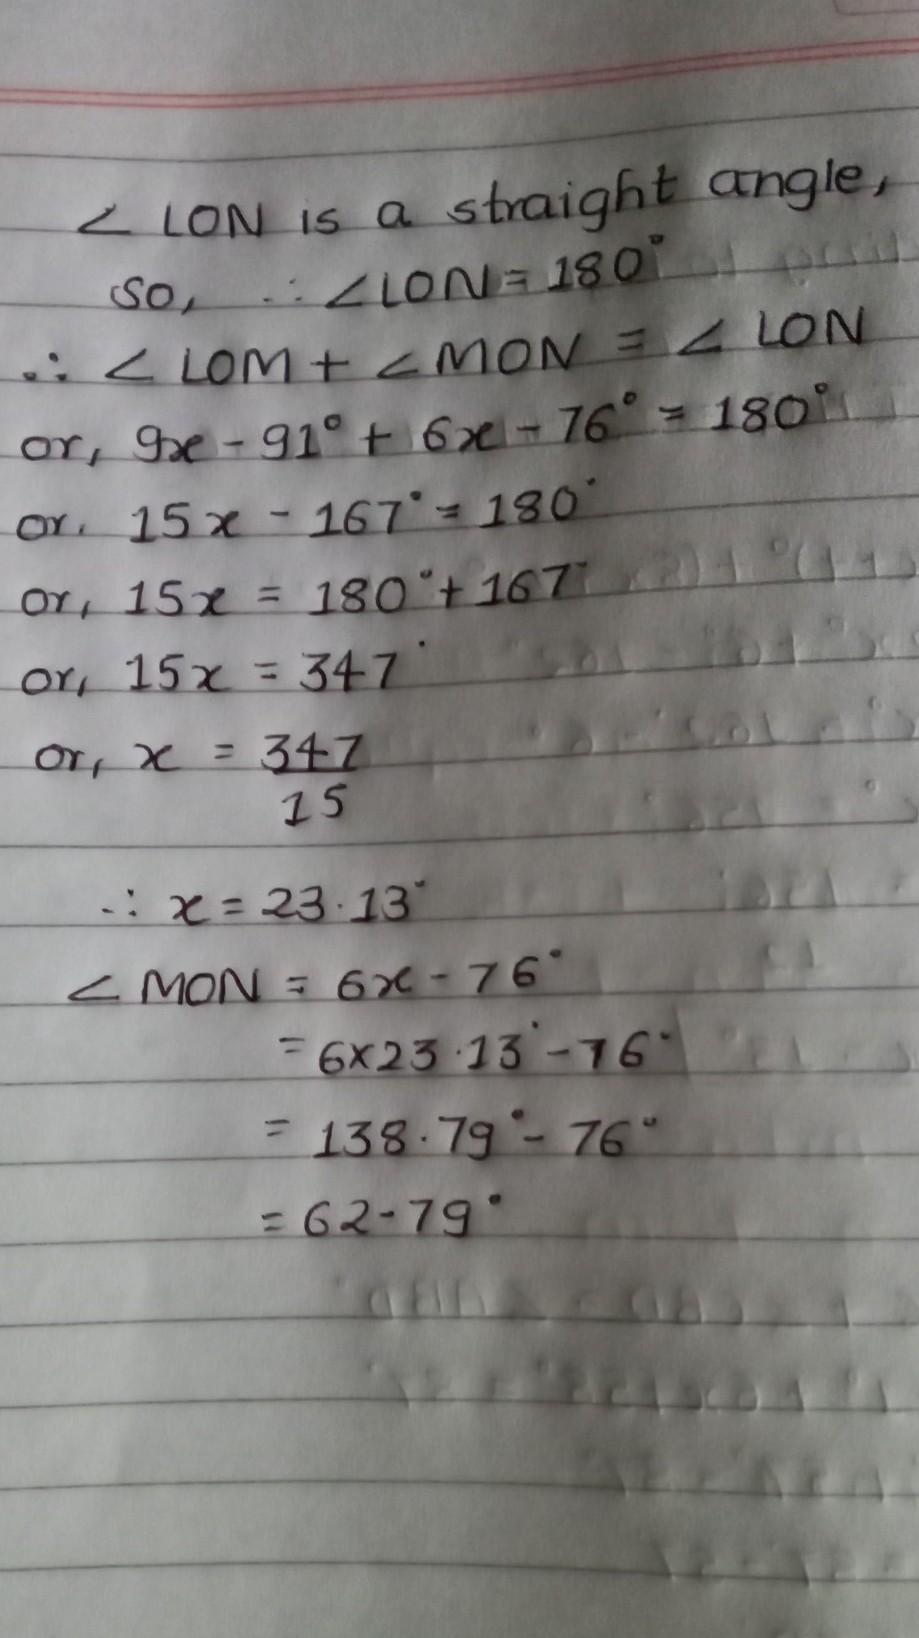 ∠ LON is a straight angle,
so, ∴ ∠LON = 180°
∴ ∠ LOM + ∠ MON = ∠ LON
or, 9x - 91° + 6x - 76° = 180°
or. 15x - 167° = 180°
or, 15x = 180° + 167°
or, 15x = 347°
or, x = 347
15
∴ x = 23.13°
∠ MON = 6x - 76°
= 6×23.13° - 76°
= 138.79° - 76°
= 62.79°